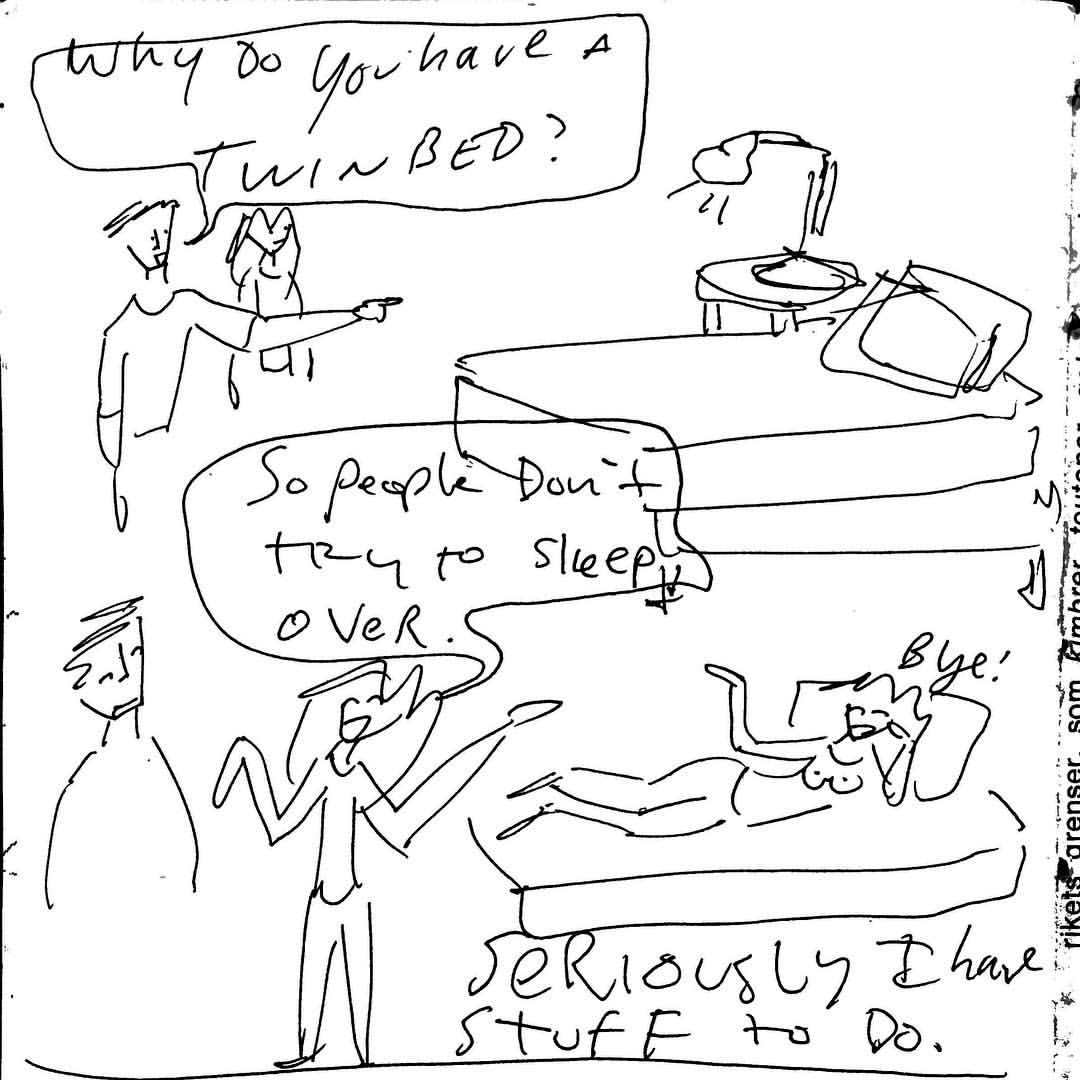 Why Do You have A
TWIN BED?
So people Don't
try to sleep
OVER.
Bye!
SERIOUSLY I have
Stuff to Do.
rikets grenser, som kimbrer, teutoner